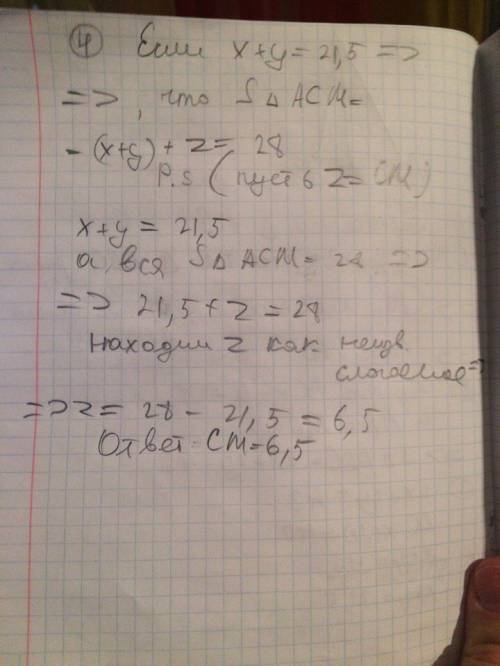 4 Если x+y=21,5 =>
=>, что S△ ACM=
- (x+y) + z = 28
P.S (пусть z= CM)
x+y = 21,5
а вся S△ ACM= 28 =>
=> 21,5 + z = 28
находим z как неизв.
слагаемое=>
=> z = 28 - 21,5 = 6,5
Ответ CM=6,5